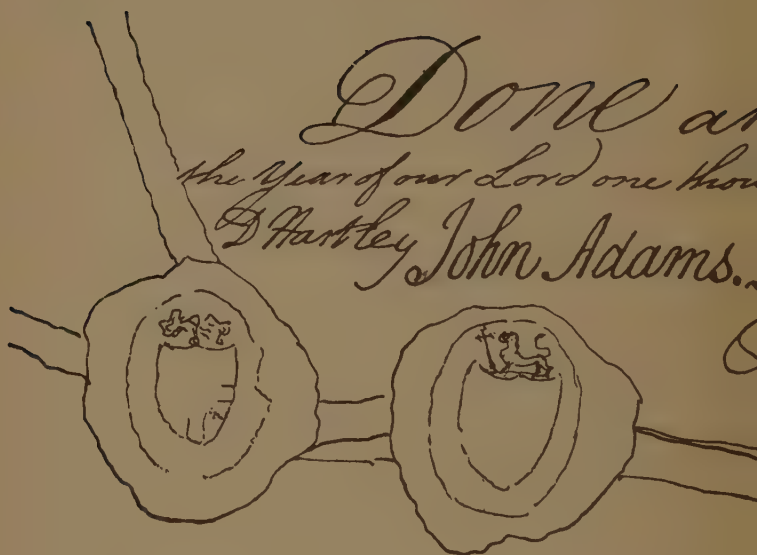 Done an
the Year of our Lord one thou
D Hartley John Adams.